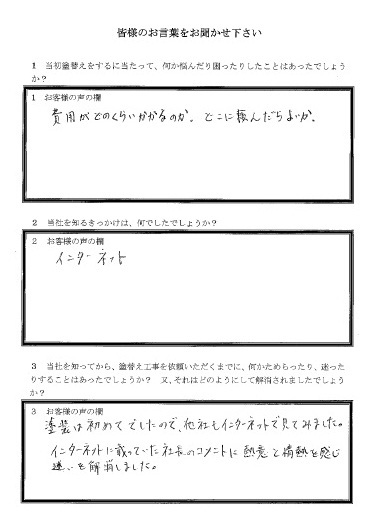 皆様のお言葉をお聞かせ下さい
1 当初塗替えをするに当たって、何か悩んだり困ったりしたことはあったでしょう
か？
1 お客様の声の欄
費用がどのくらいかかるのか。どこに頼んだらよいか。
2 当社を知るきっかけは、何でしたでしょうか？
2 お客様の声の欄
インターネット
3 当社を知ってから、塗替え工事を依頼いただくまでに、何かためらったり、迷った
りすることはあったでしょうか？ 又、それはどのようにして解消されましたでしょう
か？
3 お客様の声の欄
塗装は初めてでしたので、他社もインターネットで見てみました。
インターネットに載っていた社長のコメントに熱意と情熱を感じ
迷いを解消しました。